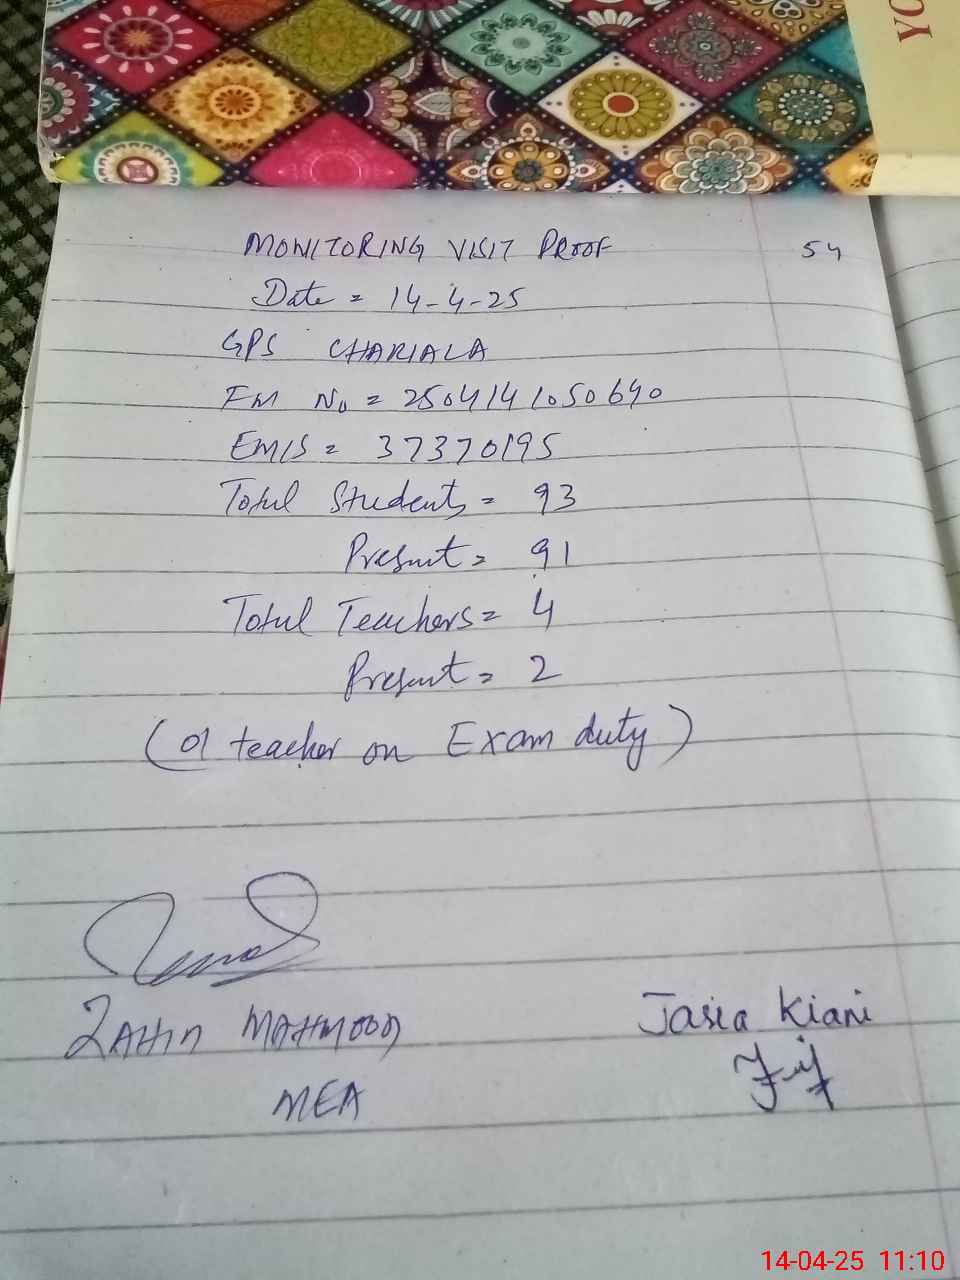 YO
MONITORING VISIT PROOF 54
Date = 14-4-25
GPS CHARIALA
FM No = 2504141050640
EMIS = 37370195
Total Students = 93
Present = 91
Total Teachers = 4
Present = 2
(01 teacher on Exam duty)
ZAHID MAHMOOD
MEA
Jasia Kiani
14-04-25 11:10